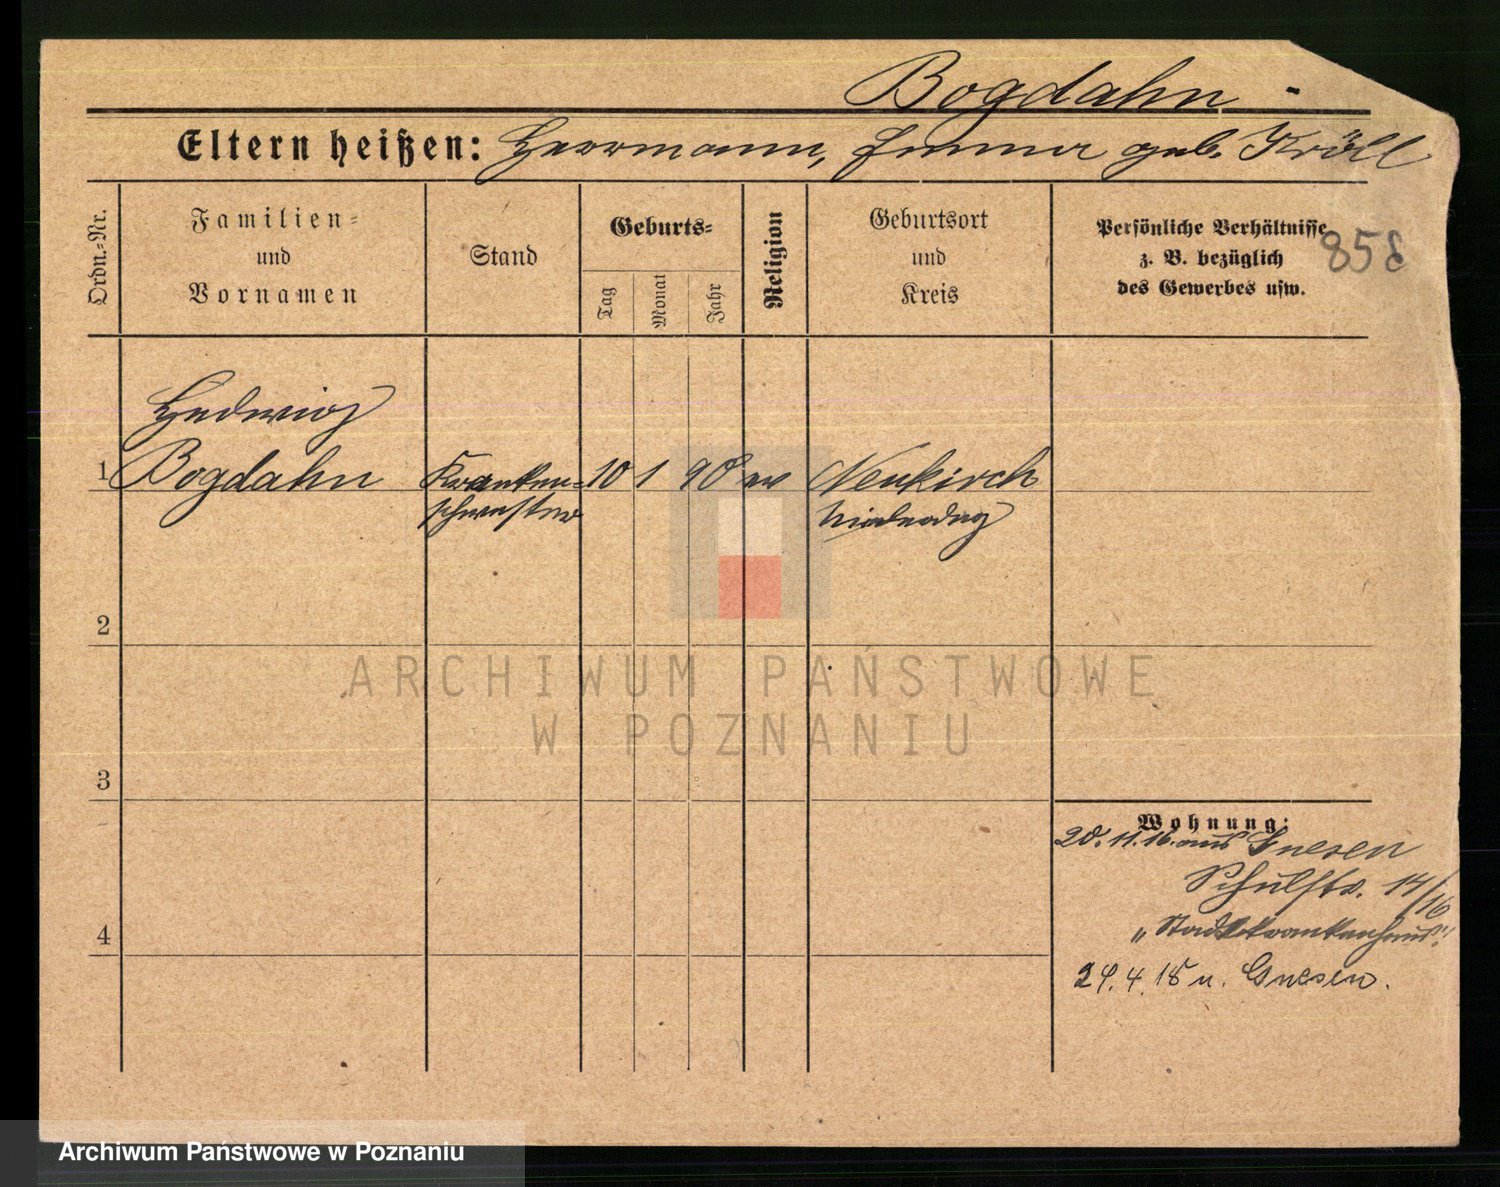 Bogdahn -
Eltern heißen: Herrmann, Emma geb. Kröll
Ordn.=Nr.
Familien=
und
Vornamen
Stand
Geburts=
Tag
Monat
Jahr
Religion
Geburtsort
und
Kreis
Persönliche Verhältnisse
z. B. bezüglich
des Gewerbes usw.
858
Hedwig
1 Bogdahn Kranken= 10 1 90 ev Neukirch
schwester
2
3
4
Wohnung:
20.11.16. aus Gnesen
Schulstr. 14/16
„Stadtkrankenhaus"
24.4.18 n. Gnesen.
ARCHIWUM PAŃSTWOWE
W POZNANIU
Archiwum Państwowe w Poznaniu